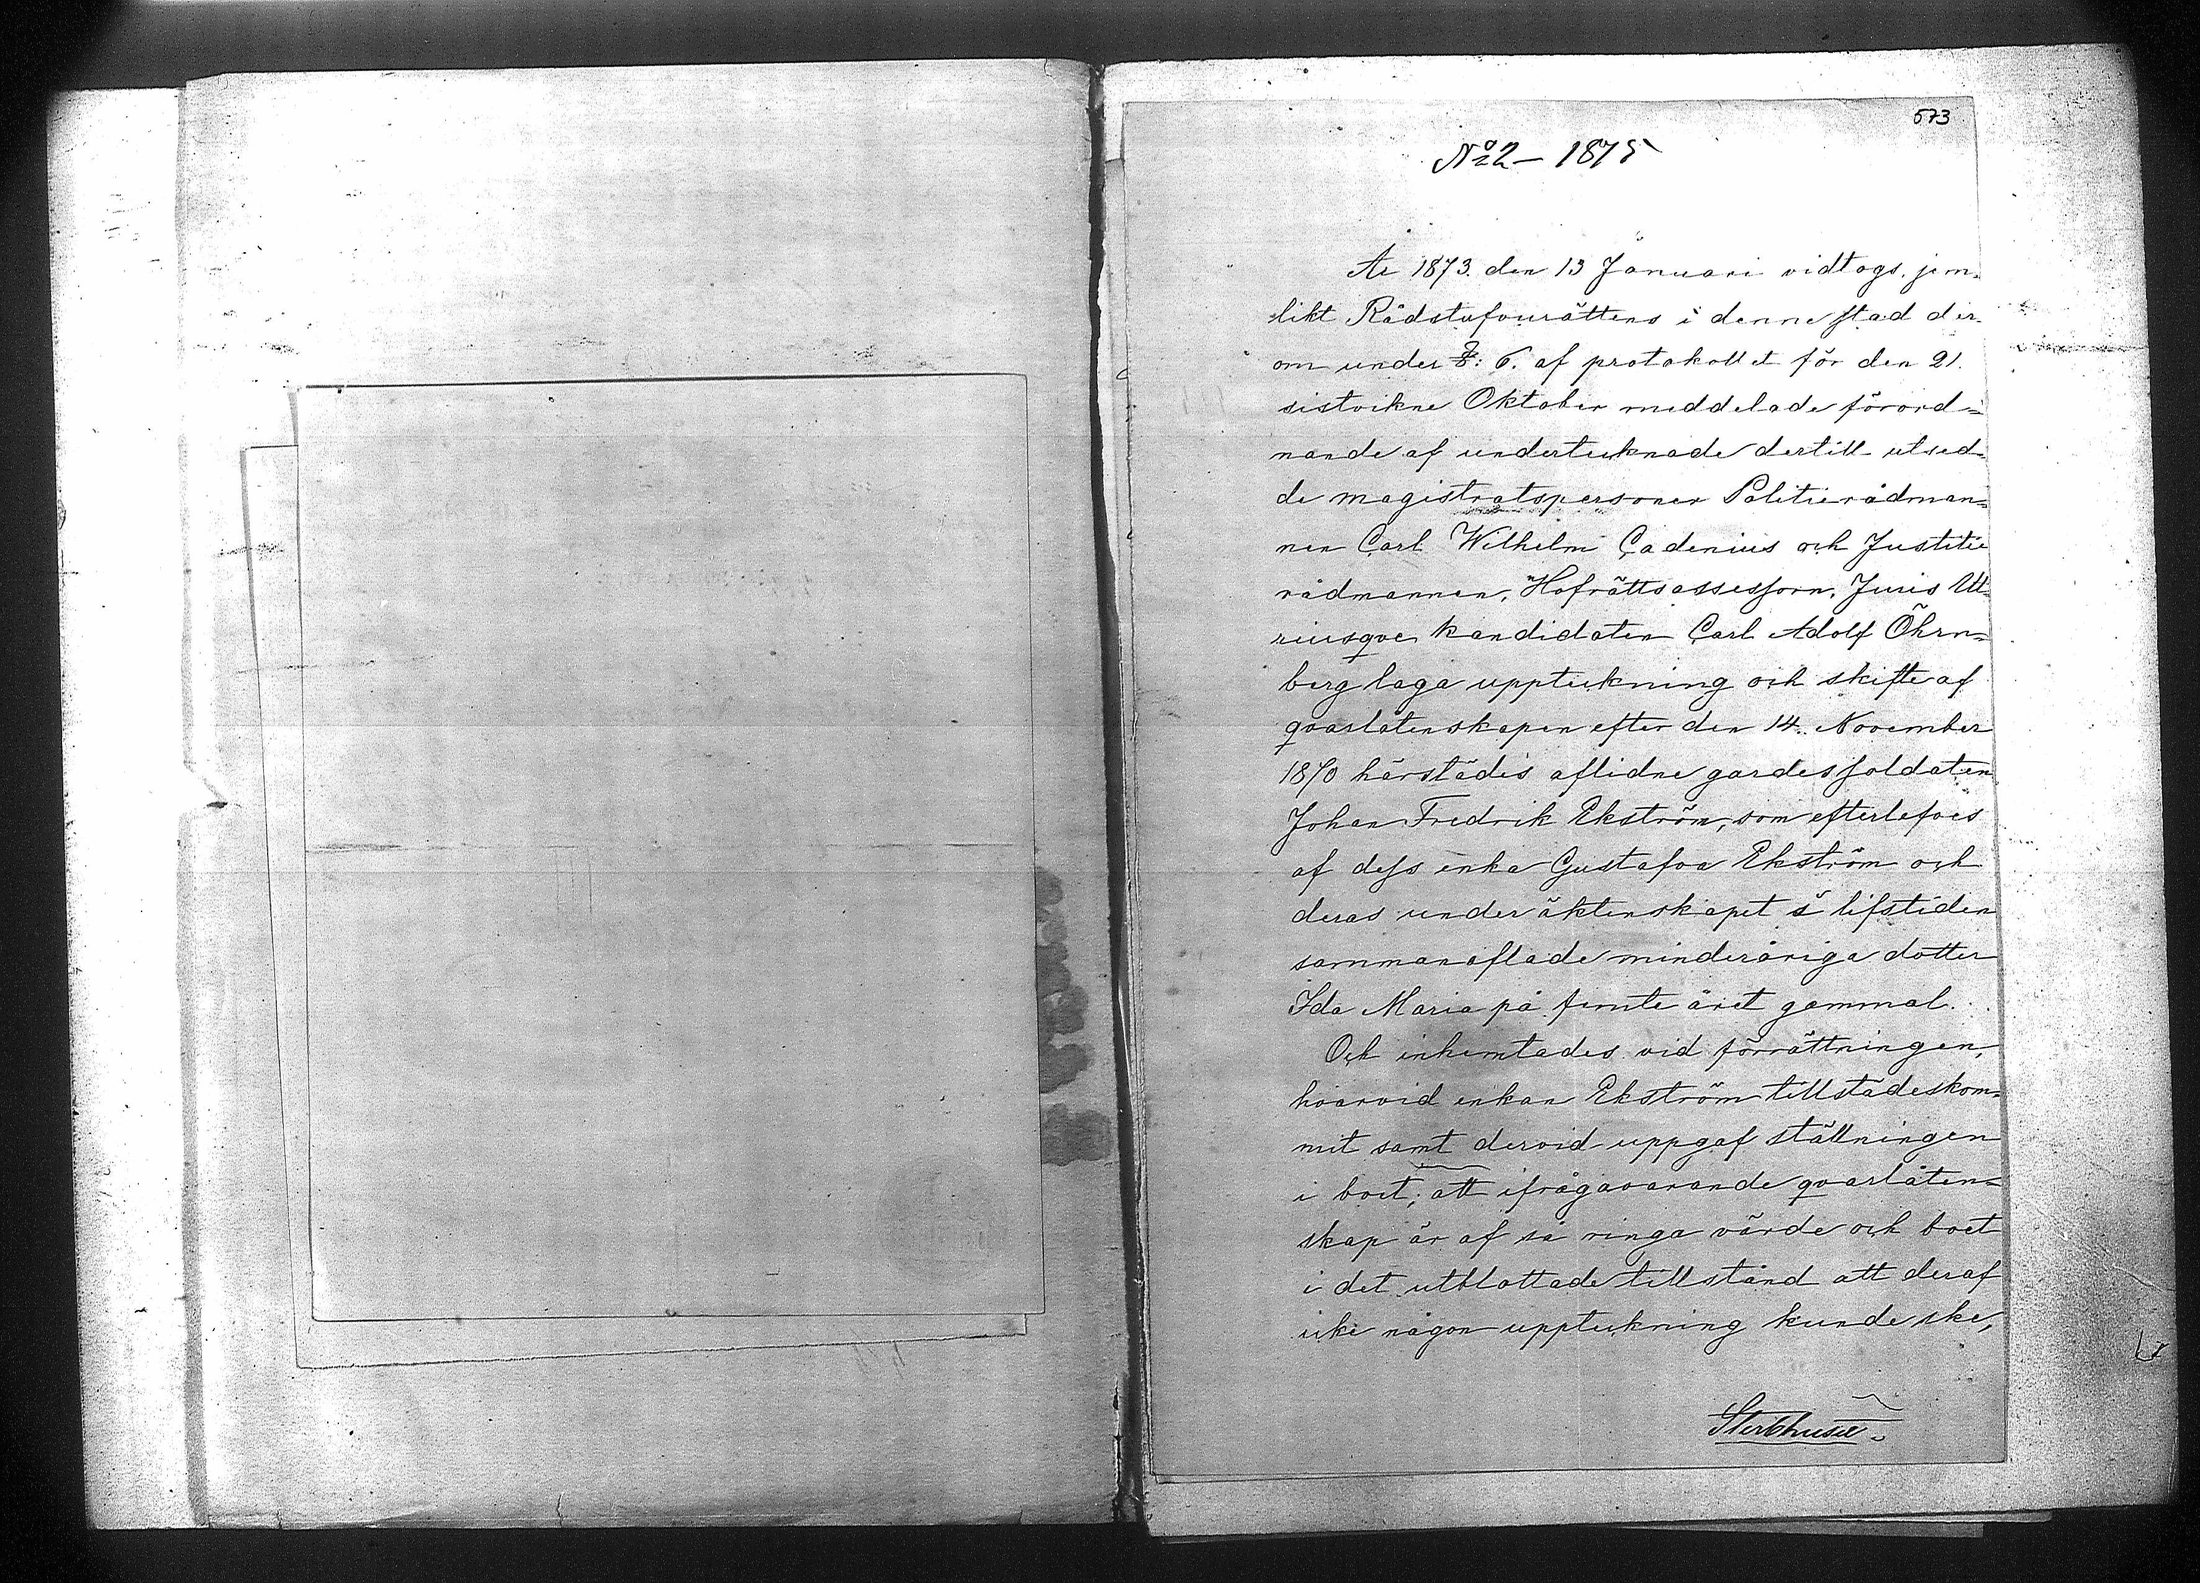 573
No 2 – 1875
År 1873 den 13 Januari vidtogs, jem-
likt Rådstufvurättens i denne stad der-
om under §: 6. af protokollet för den 21.
sistvikne Oktober meddelade förord-
nande af undertecknade dertill utsed-
de magistratspersoner Politierådman-
nen Carl Wilhelm Cadenius och Justitie
rådmannen, Hofrättsassessorn, Juris Ut-
riusqve kandidaten Carl Adolf Öhrn-
berg laga uppteckning och skifte af
qvarlåtenskapen efter den 14. November
1870 härstädes aflidne gardessoldaten
Johan Fredrik Ekström, som efterlefves
af dess enka Gustafva Ekström och
deras under äktenskapet i lifstiden
sammanaflade minderåriga dotter
Ida Maria på femte året gammal.
Och inhemtades vid förrättningen,
hvarvid enkan Ekström tillstädeskom-
mit samt dervid uppgaf ställningen
i boet; att ifrågavarande qvarlåten-
skap är af så ringa värde och boet
i det utblottade tillstånd att deraf
icke någon uppteckning kunde ske,
Sterbhuset